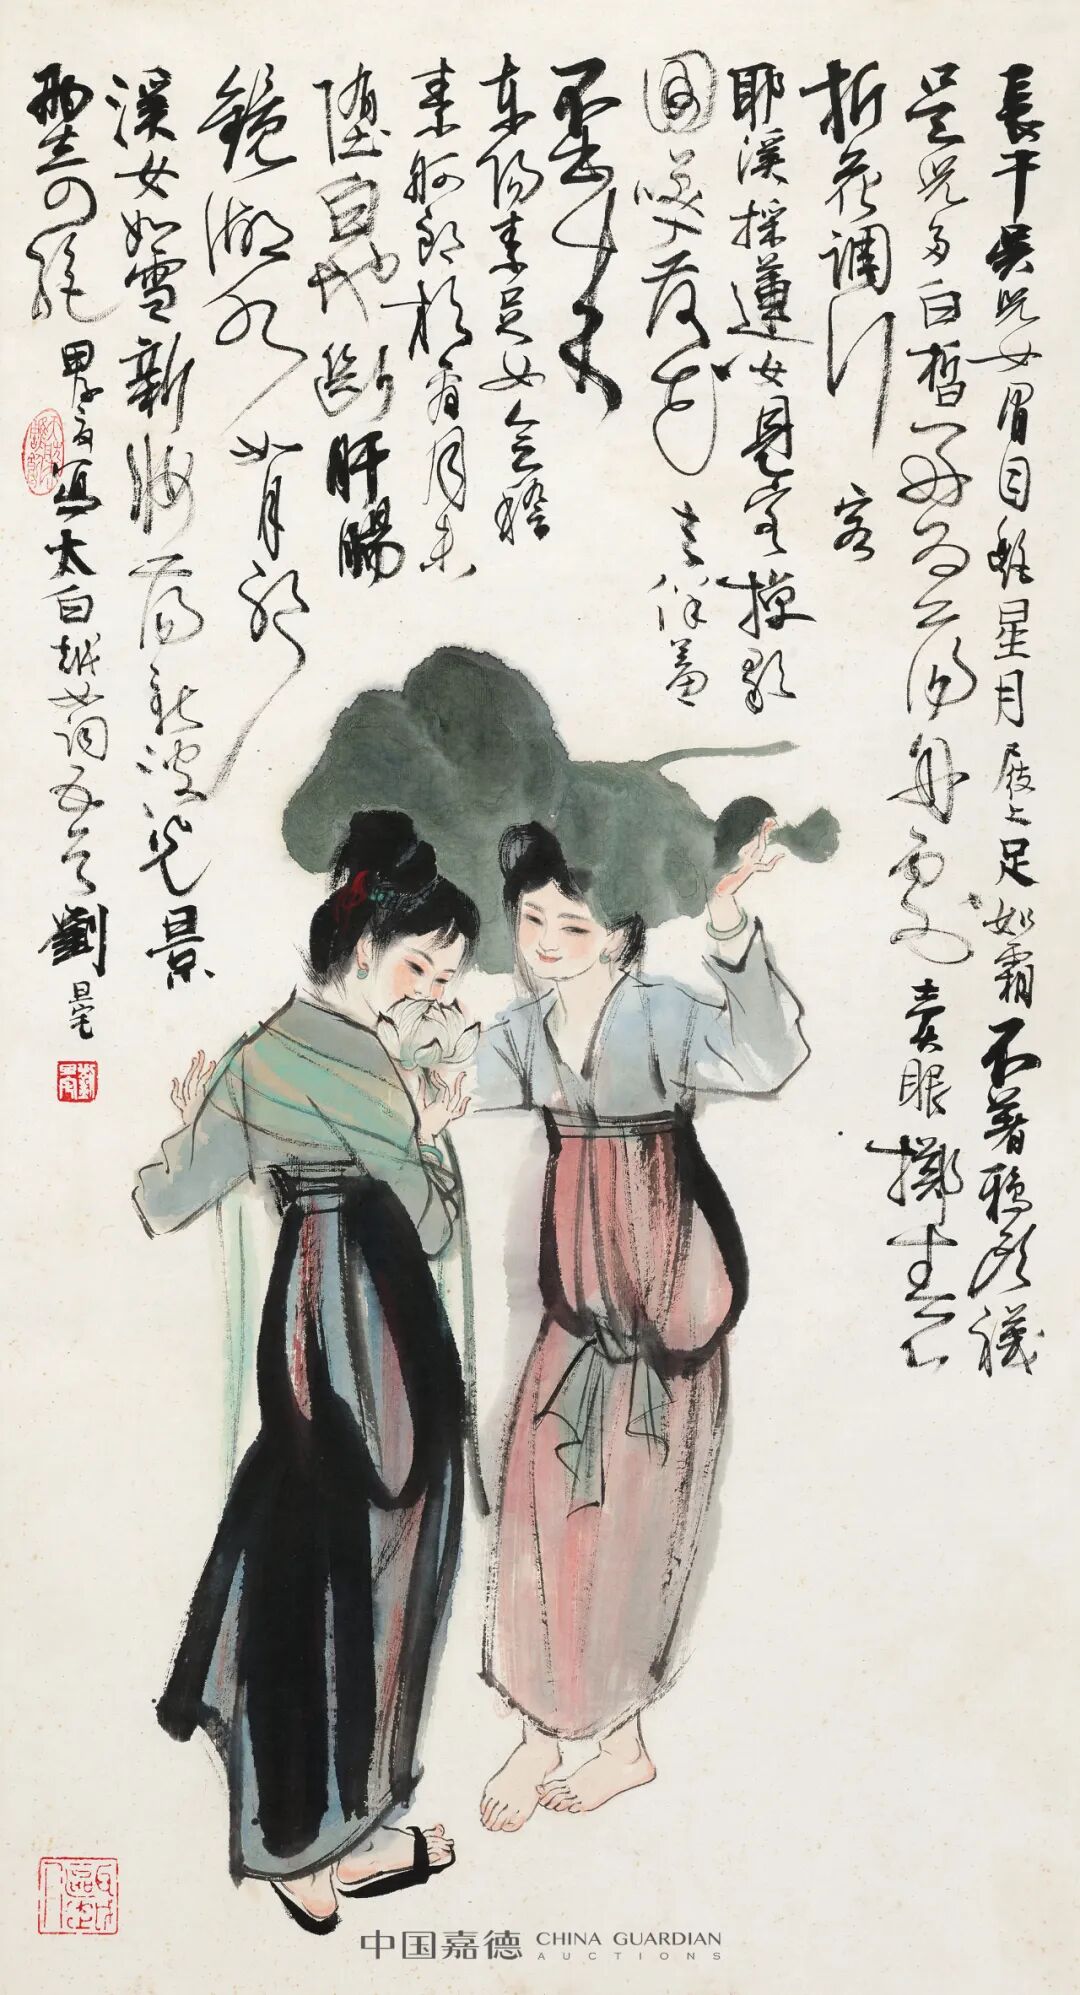 長干吳兒女眉目艷星月屐上足如霜不著鴉頭襪
吳兒多白皙好為蕩舟劇賣眼擲春心
折花調行客
耶溪採蓮女見客棹歌
回笑入荷花去佯羞
不出來
東陽素足女會稽
素舸郎相看月未
墮白地斷肝腸
鏡湖水如月耶
溪女如雪新妝蕩新波光景
兩奇絕 甲子夏寫太白越女詞五首 劉旦宅
中国嘉德 CHINA GUARDIAN
AUCTIONS